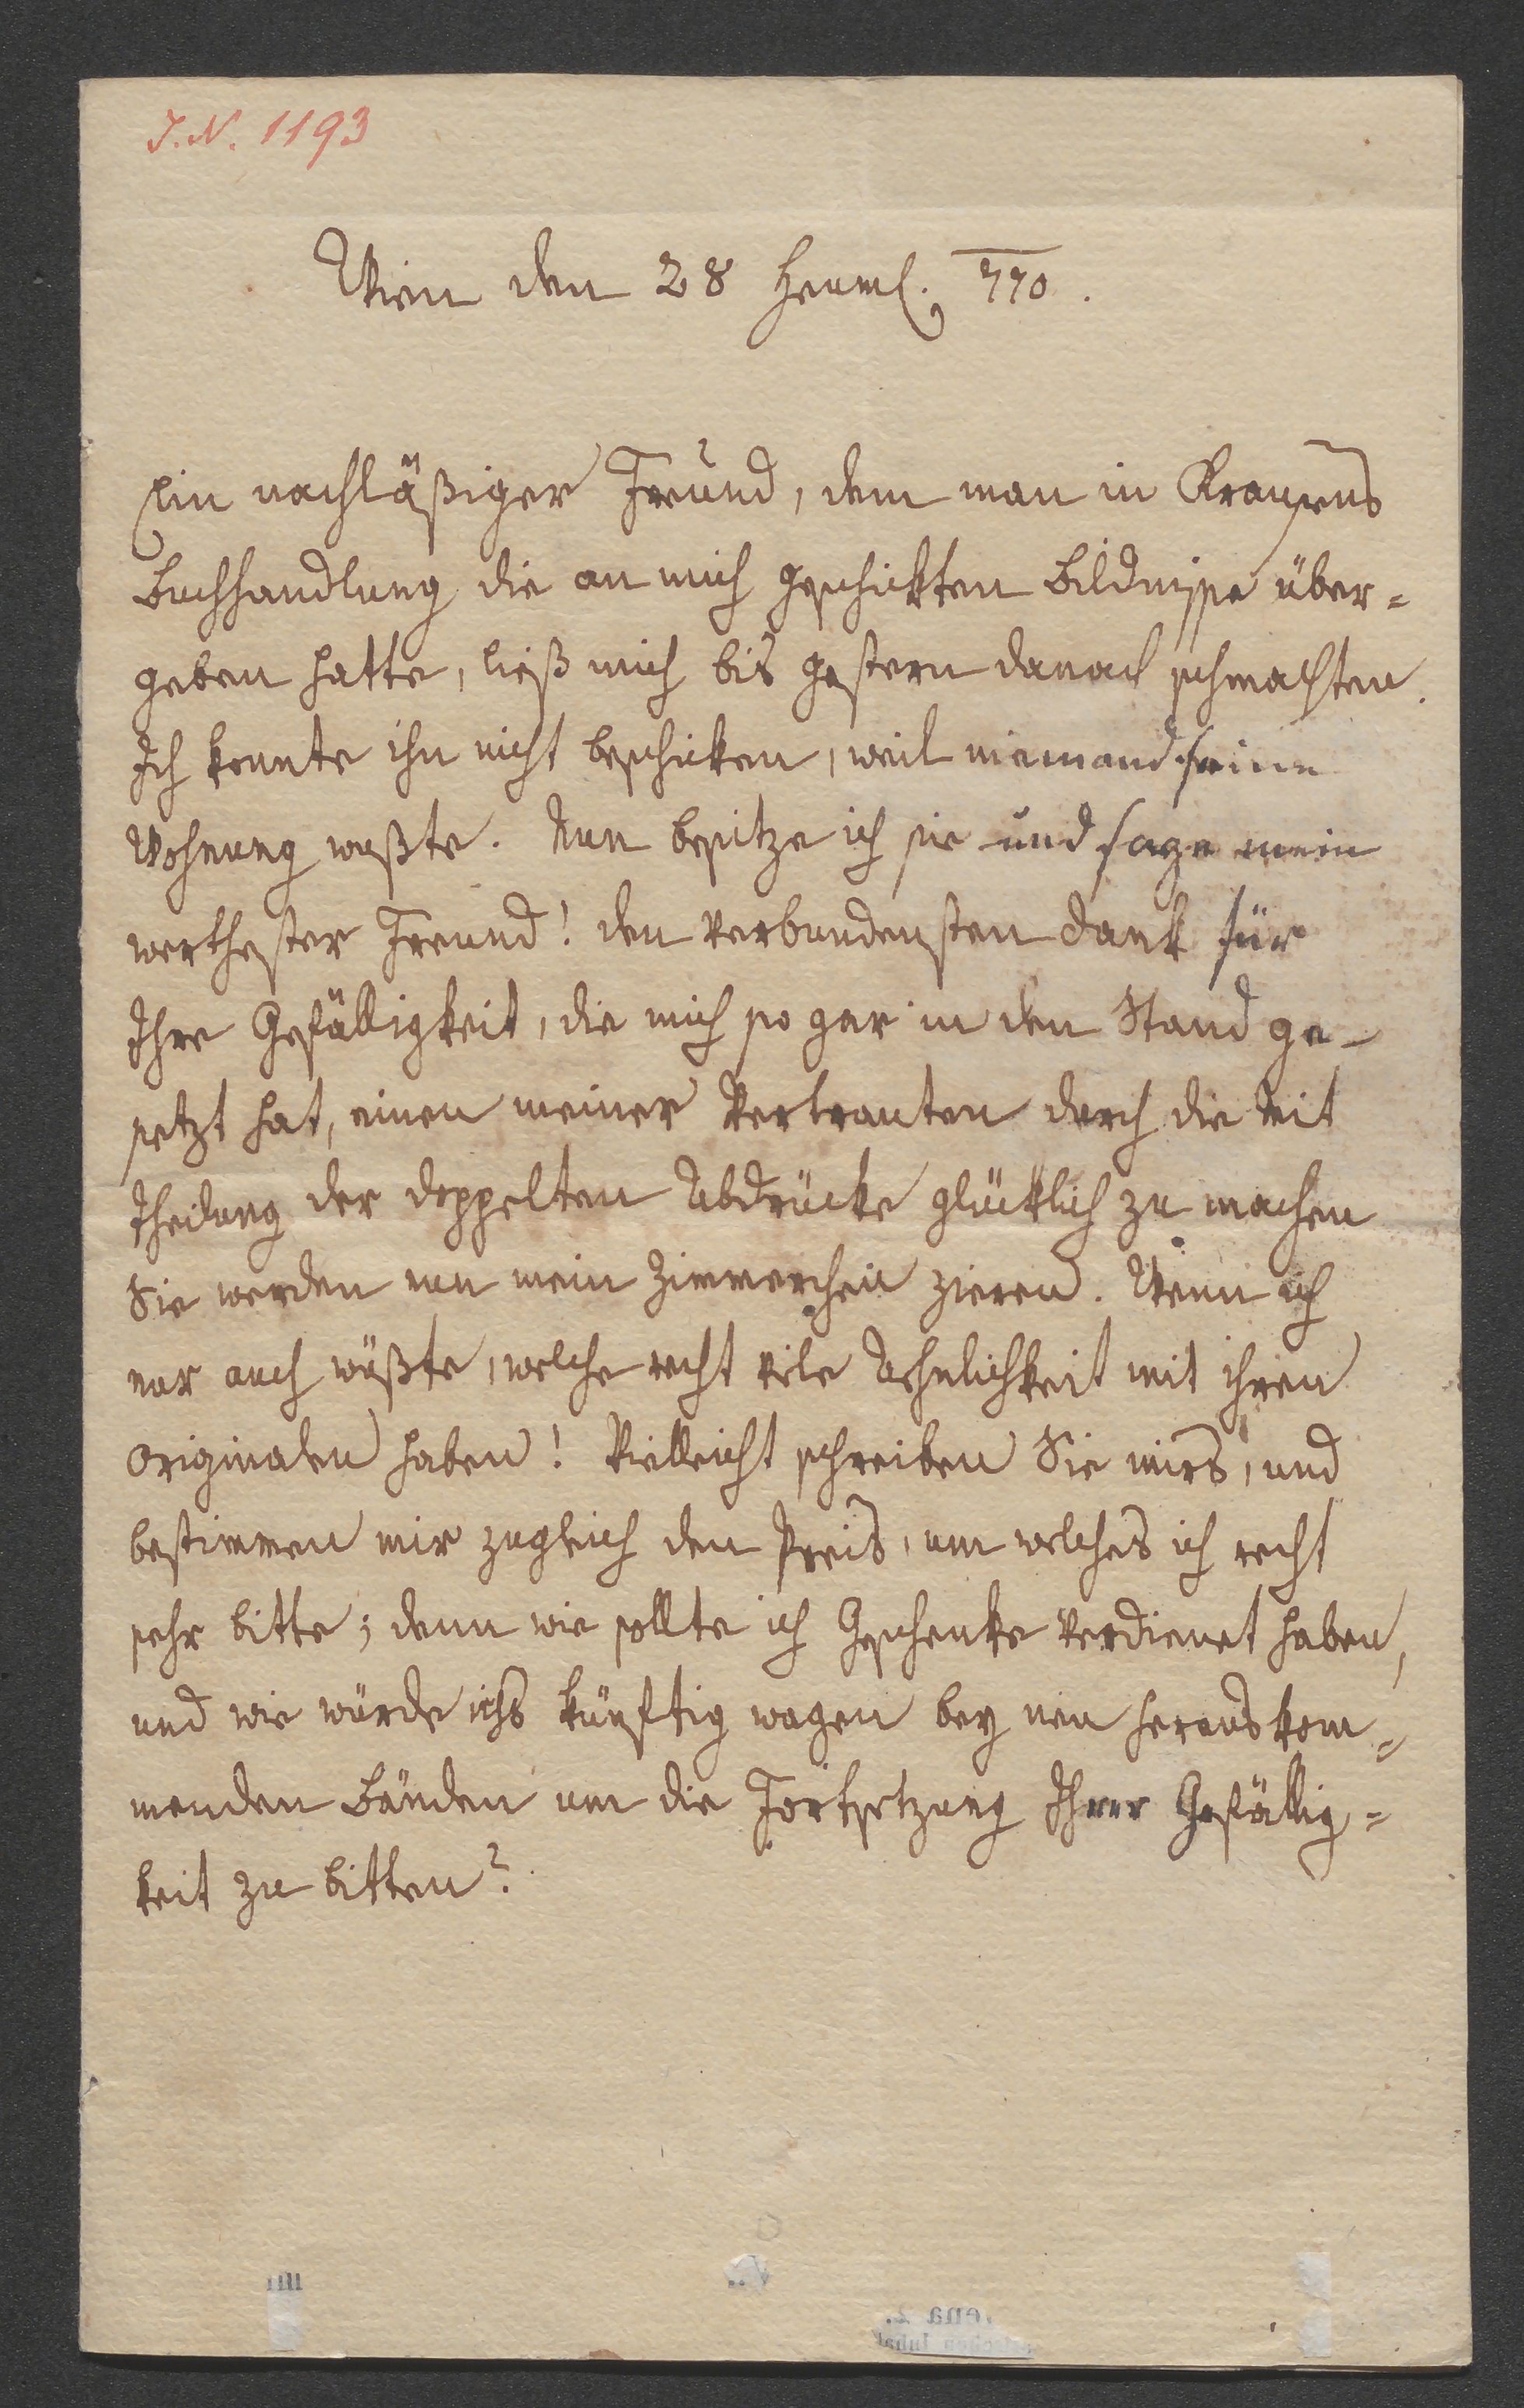 J.N. 1193
Wien den 28 Heum. 770.
Ein nachläßiger Freund, dem man in Krausens
Buchhandlung die an mich geschickten Bildnisse über=
geben hatte, ließ mich bis gestern danach schmachten.
Ich konnte ihn nicht beschicken, weil niemand seine
Wohnung wußte. Nun besitze ich sie und sage mein
werthester Freund! den verbundensten Dank für
Ihre Gefälligkeit, die mich so gar in den Stand ge-
setzt hat, einen meiner Vertrauten durch die Mit
theilung der doppelten Abdrücke glücklich zu machen
Sie werden nun mein Zimmerchen zieren. Wenn ich
nur auch wüßte, welche recht viele Aehnlichkeit mit ihren
Originalen haben! Vielleicht schreiben Sie mirs, und
bestimmen mir zugleich den Preis, um welches ich recht
sehr bitte; denn wie sollte ich Geschenke verdienet haben,
und wie würde ichs künftig wagen bey neu herauskom=
menden Bänden um die Fortsetzung Ihrer Gefällig=
keit zu bitten?